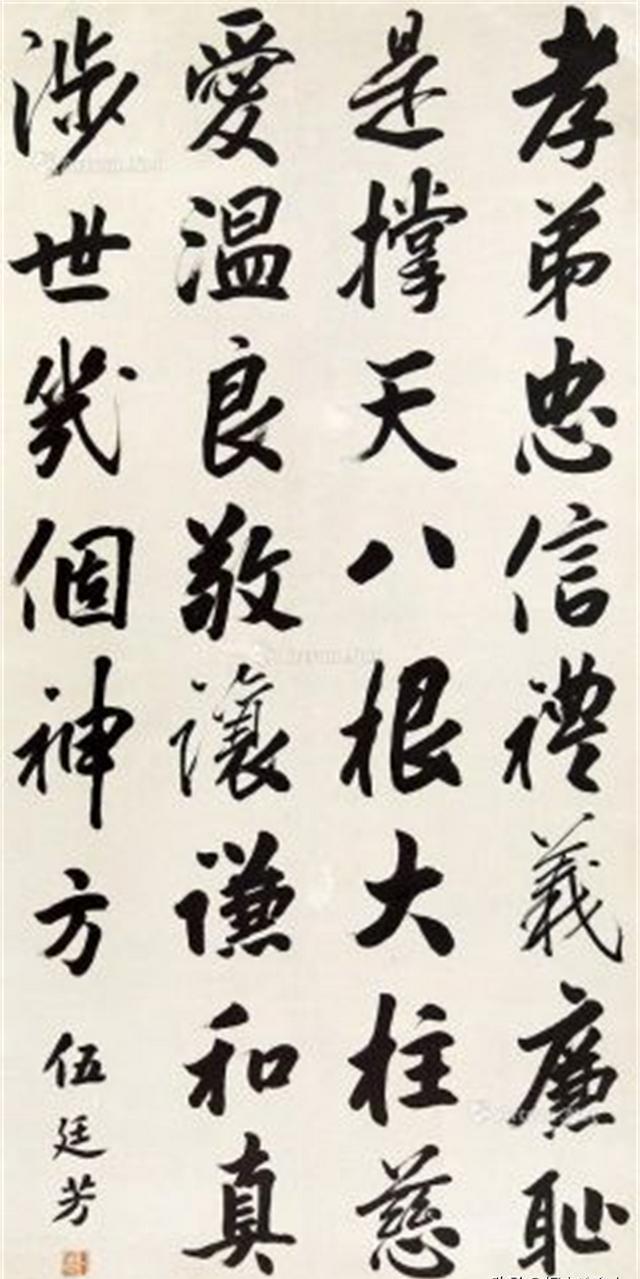 孝弟忠信禮義廉恥
是撑天八根大柱慈
愛温良敬讓謙和真
涉世幾個神方
伍廷芳